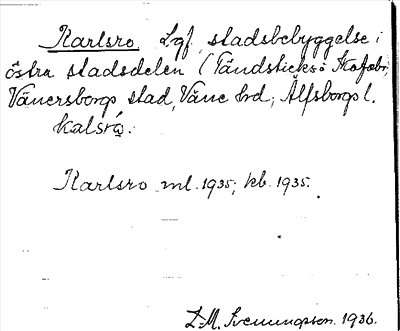 Karlsro. Lgf, stadsbebyggelse i
östra stadsdelen (Tändsticks- o
Vänersborgs stad, Väne hd; Älfsborgs l.
kalsrǫ.
Karlsro ml. 1935; kb. 1935.
D.M. Svenungson. 1936.